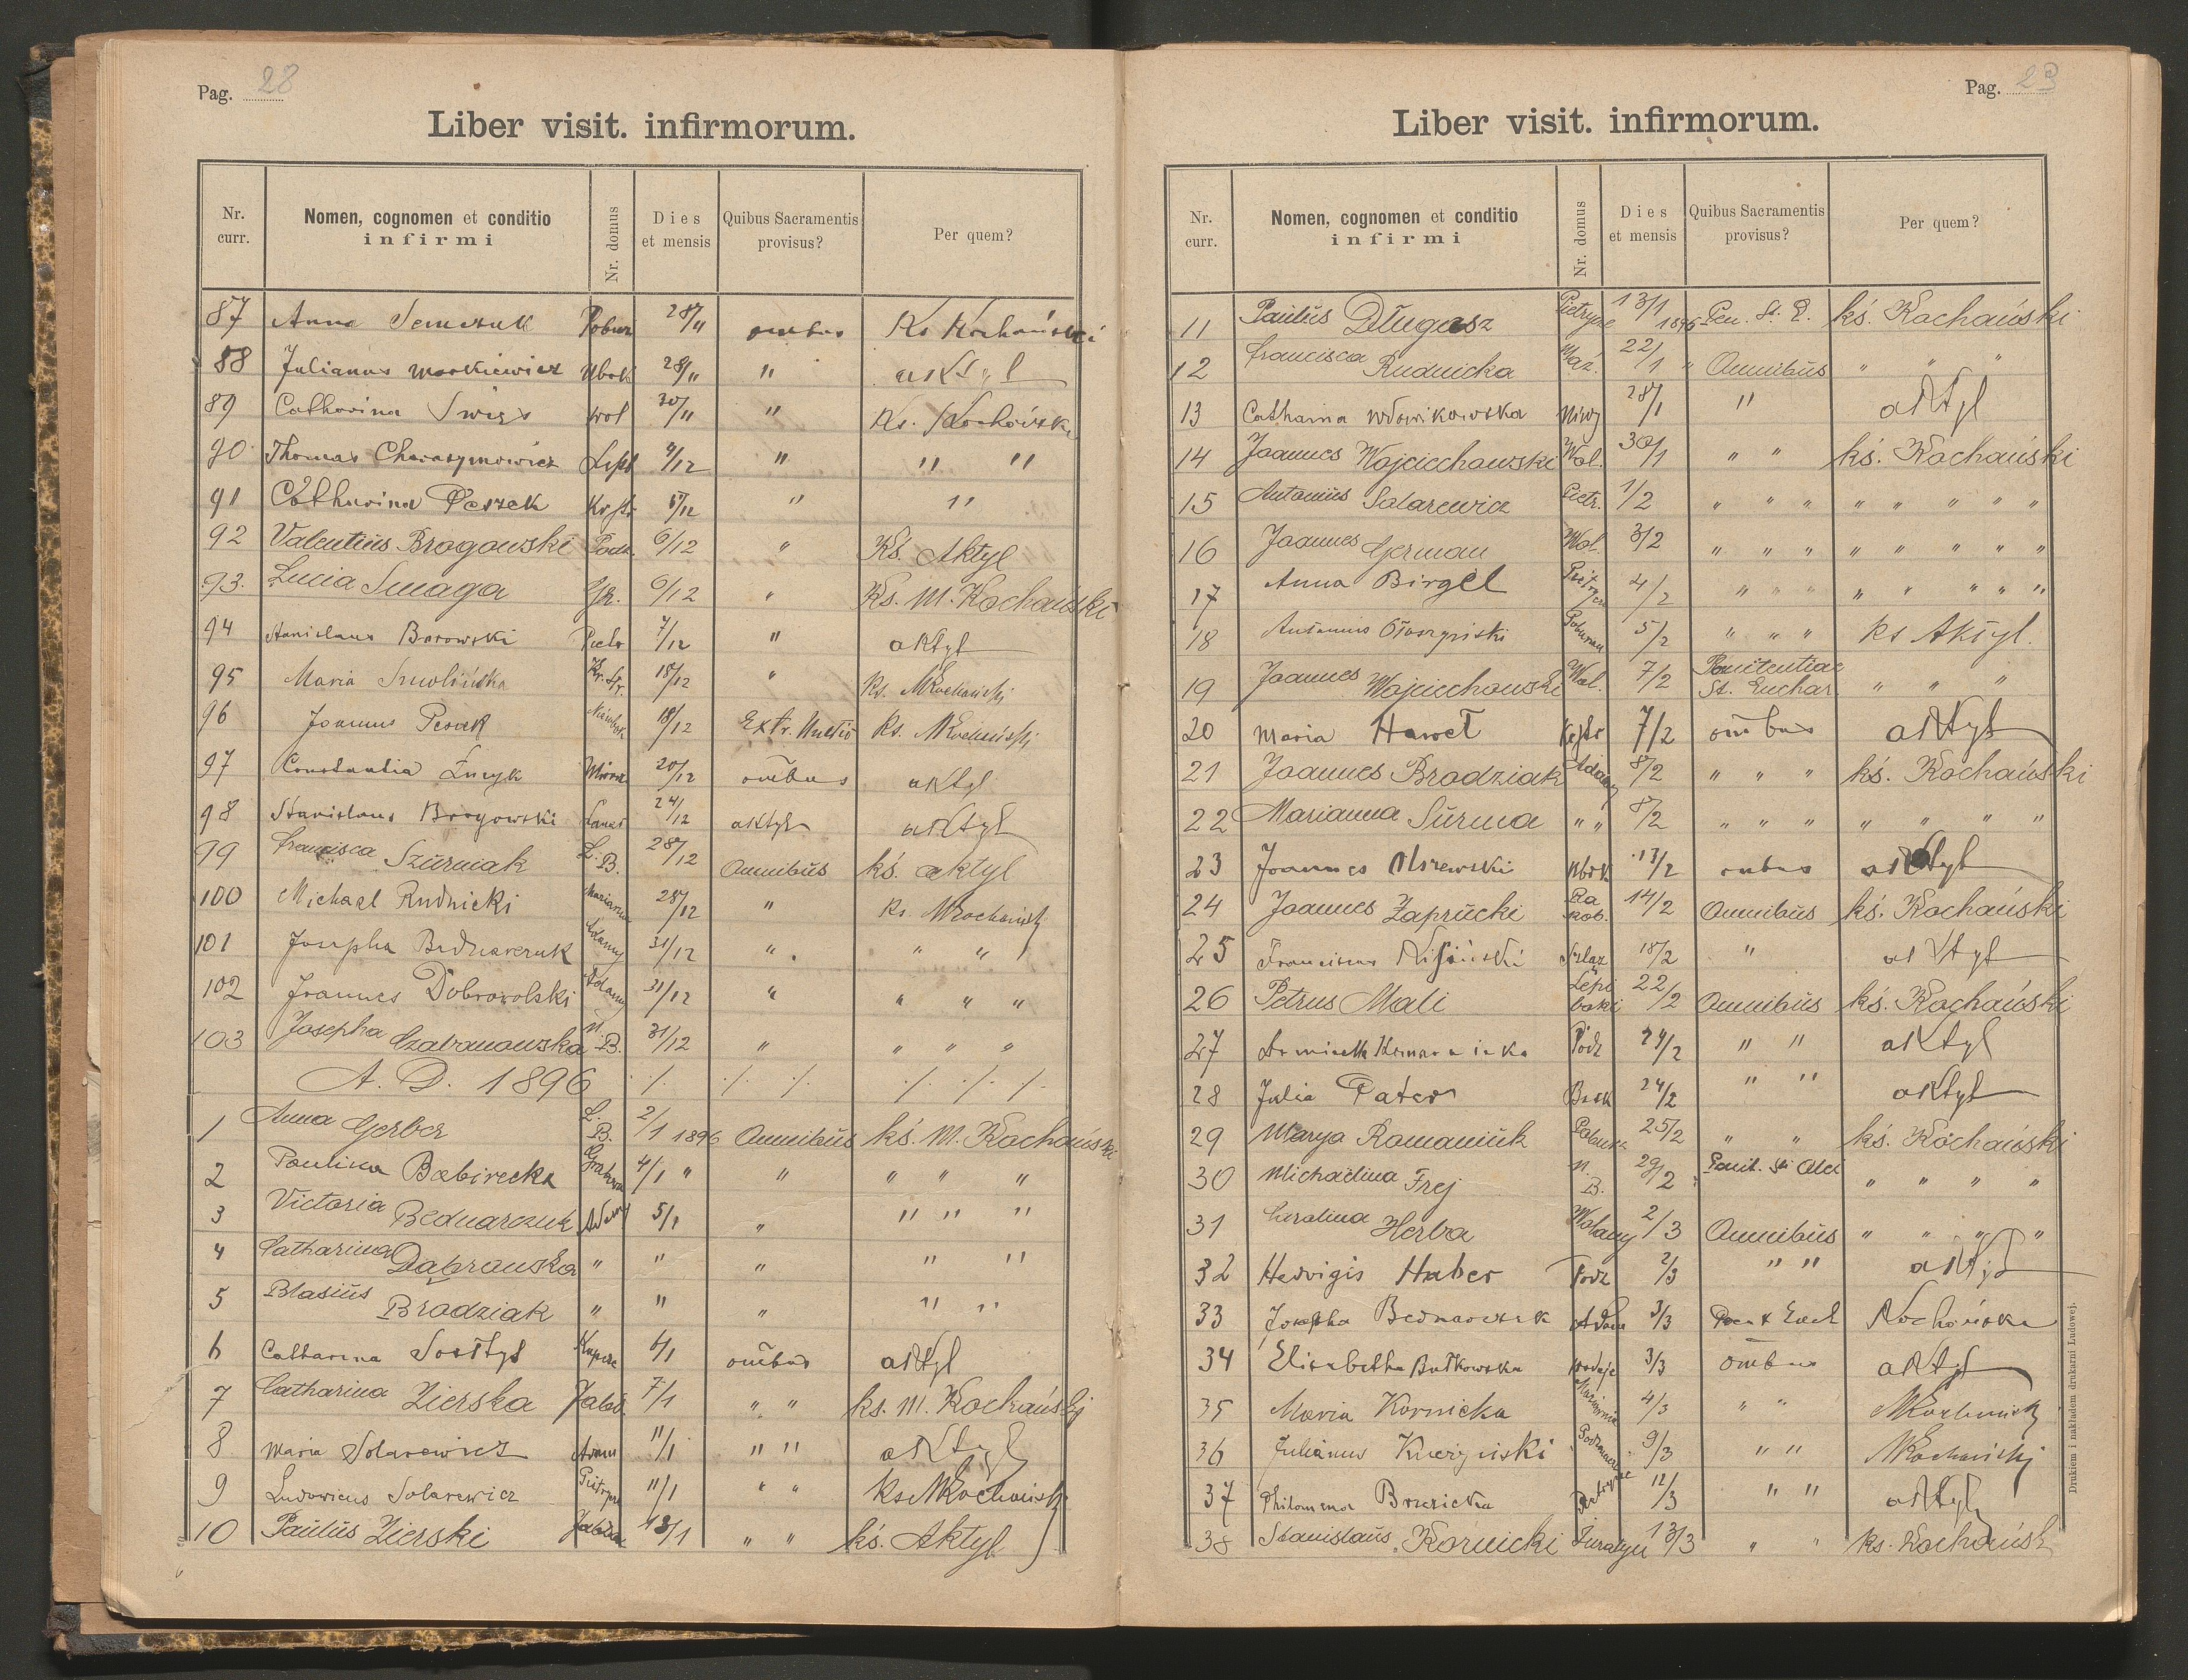 Pag. 28
Liber visit. infirmorum.
Nr. curr. Nomen, cognomen et conditio infirmi Nr. domus Dies et mensis Quibus Sacramentis provisus? Per quem?
87 Anna Semczuk 28/11 ombus Ks Kochański
88 Julianus Markiewicz 28/11 " aktyl
89 Catharina 30/11 " Ks. Kochański
90 Thomas Charasymowicz 4/12 " " "
91 Catharina Peszek 5/12 " "
92 Valentius Brogowski Podz. 6/12 " Ks. Aktyl
93. Lucia Smaga 6/12 " Ks. M. Kochański
94 Stanislaus Borowski Pietr 7/12 " aktyl
95 Maria Smolińska Kr. str. 18/12 " ks. MKochański
96 Joannes Pesak 18/12 Extr. Unctio ks. MKochański
97 Constantia Żmyk 20/12 om̄bus aktyl
98 Stanislaus Brogowski 24/12 aktyl aktyl
99 Francisca Szürniak L. B. 28/12 Omnibŭs kś. aktyl
100 Michael Rudnicki Marianna 28/12 " ks. MKochański
101 Josepha Bednarczuk Adamy 31/12 " " "
102 Joannes Dobrowolski Adamy 31/12 " " " "
103 Josepha Czabanowska N. B. 31/12 " " " "
A. D. 1896 ·/. ·/. ·/. ·/. ·/. ·/.
1 Anna Gerber L. B. 2/1 1896 Omnibŭs kś. M. Kochański
2 Paulina Babirecka 4/1 " " " " "
3 Victoria Bednarczuk Adamy 5/1 " " " "
4 Catharina Dąbrowska " " " " "
5 Blasiŭs Brodziak " " " " "
6 Catharina Sołtys 6/1 om̄bus aktyl
7 Catharina Zierska 7/1 " " ks. M. Kochański
8 Maria Solarewicz 11/1 " " aktyl
9 Ludowicus Solarewicz Pietrycze 11/1 " " ks MKochański
10 Paulŭs Zierski 13/1 " " kś. Aktyl
Pag. 23
Liber visit. infirmorum.
Nr. curr. Nomen, cognomen et conditio infirmi Nr. domus Dies et mensis Quibus Sacramentis provisus? Per quem?
11 Paulŭs Długosz Pietrycze 13/1 1896 Pen. St. E. kś. Kochański
12 Francisca Rudnicka 22/1 " Omnibŭs " "
13 Catharina Wdowikowska 28/1 " aktyl
14 Joannes Wojciechowski Wol. 30/1 " " kś. Kochański
15 Antoniŭs Solarewicz Pietr. 1/2 " " " " " " " "
16 Joannes German Wol. 3/2 " " " " " " " "
17 Anna Birgel 4/2 " " " " " " " "
18 5/2 " " " ks Aktyl.
19 Joannes Wojciechowski Wol. 7/2 Pœnitentiae St. Euchar. " " "
20 Maria Haweł 7/2 om̄bus aktyl
21 Joannes Brodziak Adamy 8/2 " " " kś. Kochański
22 Marianna Sŭrma " " 8/2 " " " " " " "
23 Joannes Olszewski 13/2 ombus aktyl
24 Joannes Zaprŭcki Ra kob. 14/2 Omnibŭs kś. Kochański
25 Franciscus 18/2 " aktyl
26 Petrus Mali 22/2 Omnibŭs kś. Kochański
27 Podz 24/2 " " aktyl
28 Julia Pater Busk 24/2 " " aktyl
29 Marya Romaniŭk 25/2 " " kś. Kochański
30 Michaelina Frej N. B. 29/2 " " " "
31 Carolina Herba Wolany 2/3 Omnibŭs " " " "
32 Hedvigis Huber Podz 2/3 " " aktyl
33 Josepha Bednarczuk 3/3 Kochańska
34 Elisabetha Butkowska 3/3 om̄bus aktyl
35 Maria Kornicka 4/3 " " MKochański
36 Julianus 9/3 " " MKochański
37 Philomena 12/3 " " aktyl
38 Stanislaŭs Kornicki 13/3 " " ks. Kochańsk
Drukiem i nakładem drukarni Ludowej.